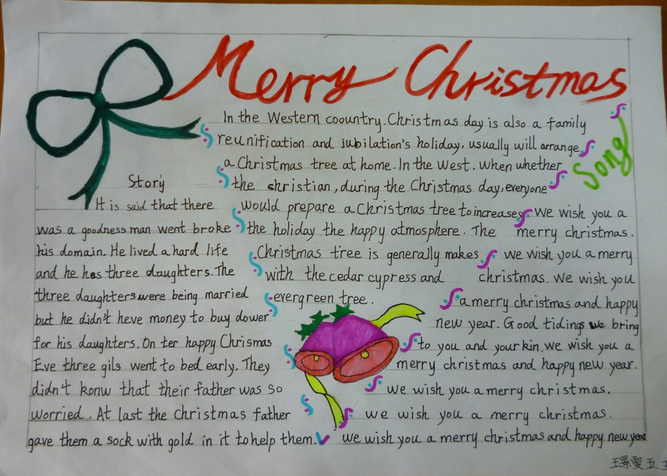 Merry Christmas
In the Western coountry. Christmas day is also a family
reunification and jubilation's holiday, usually will arrange
a Christmas tree at home. In the West. when whether
the christian, during the Christmas day, everyone
would prepare a Christmas tree to increases
the holiday the happy atmosphere. The
Christmas tree is generally makes
with the cedar cypress and
evergreen tree.
Story
It is said that there
was a goodness man went broke
his domain. He lived a hard life
and he has three daughters. The
three daughters were being married
but he didn't heve money to buy dower
for his daughters. On ter happy Chrismas
Eve three gils went to bed early. They
didn't konw that their father was so
worried. At last the Christmas father
gave them a sock with gold in it to help them.
Song
We wish you a
merry christmas.
we wish you a merry
christmas. we wish you
a merry christmas and happy
new year. Good tidings we bring
to you and your kin. we wish you a
merry christmas and happy new year.
we wish you a merry christmas.
we wish you a merry christmas.
we wish you a merry christmas and happy new year